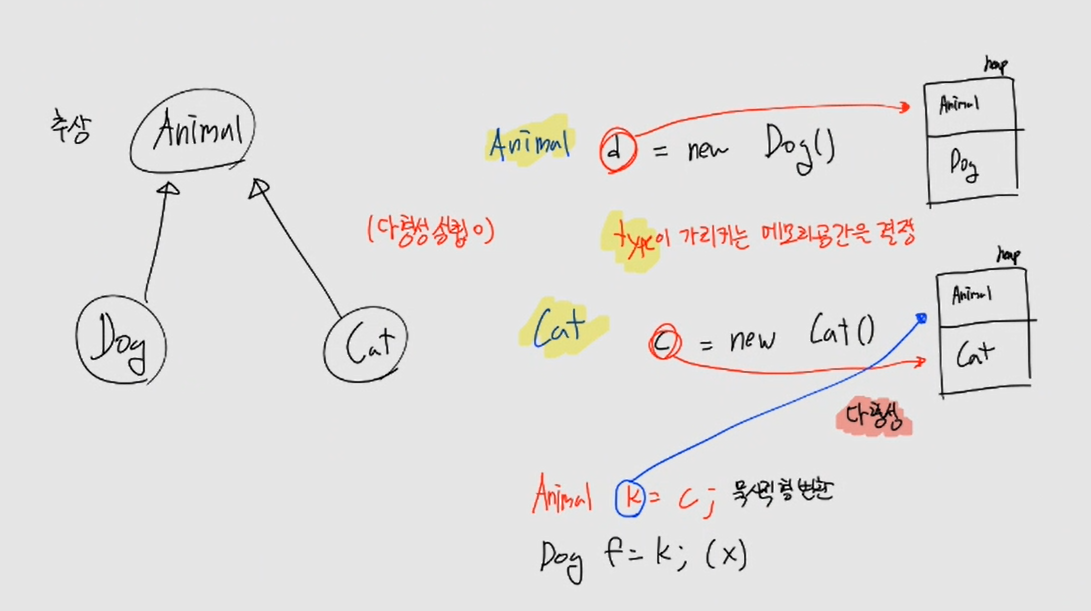 추상
Animal
Dog
Cat
(다형성 성립 o)
Animal d = new Dog()
heap
Animal
Dog
type이 가리키는 메모리공간을 결정
Cat c = new Cat()
heap
Animal
Cat
다형성
Animal k = c; 묵시적 형변환
Dog f = k; (x)